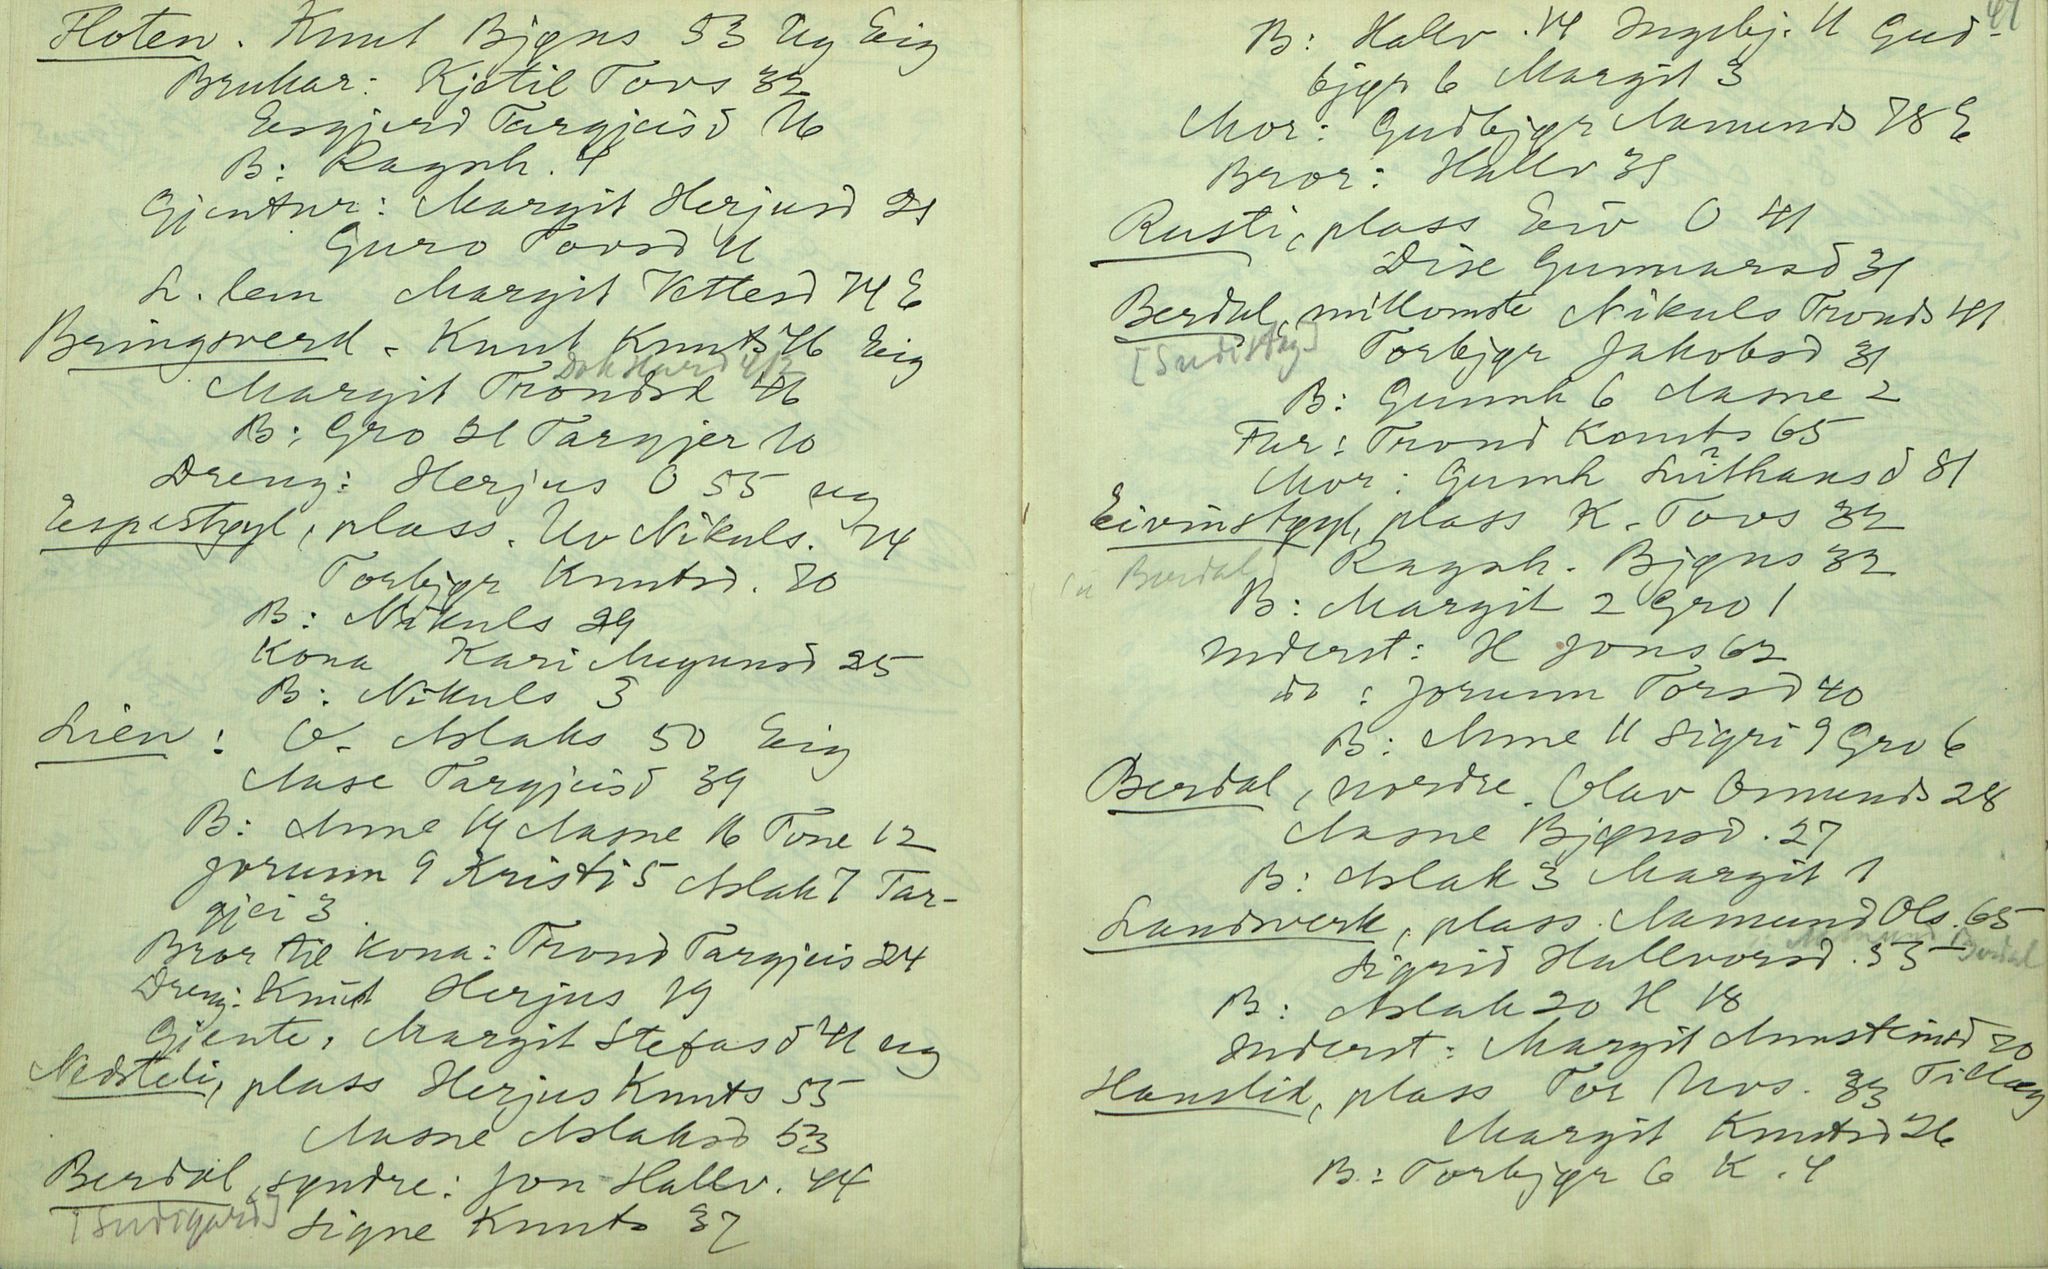 Floten. Knut Bjøns 53 Ug Eig
Brukar: Kjetil Tovs 32
Ersgjerd Targjeisd 26
B: Ragnh. 4
Gjentur: Margit Herjusd 21
Guro Tovsd 11
L. lem Margit Vettesd 74 E
Bringsverd. Knut Knuts 46 Eig
Margit Trondsd 46
B: Gro 21 Targjer 10
Dreng: Herjus O 55 ug
Espestøyl, plass. Uv Nikuls. 74
Torbjør Knutsd. 70
B: Nikuls 29
Kona Kari Mogunsd 25
B: Nikuls 3
Lien: O. Aslaks 50 Eig
Aase Targjeisd 39
B: Anne 19 Aasne 16 Tone 12
Jorunn 9 Kristi 5 Aslak 7 Tar-
gjei 3
Bror til Kona: Trond Targjeis 24
Dreng: Knut Herjus 19
Gjente: Margit Stefasd 41 ug
Nedsteli, plass Herjus Knuts 55
Aasne Aslaksd 53
Berdal, syndre: Jon Hallv. 44
[Sudigard] Signe Knuts 37
41
B: Hallv. 14 Ingebj. 11 Gud-
bjør 6 Margit 3
Mor: Gudbjør Aamunds 78 E
Bror: Hallv 39
Rusti, plass Eiv O 41
Dise Gunnarsd 31
Berdal, millomte Nikuls Tronds 41
[Sudistøg] Torbjør Jakobsd 31
B: Gunnh 6 Aasne 2
Far: Trond Knuts 65
Mor: Gunnh 81
Eivindstøyl, plass K. Tovs 32
Berdal] Ragnh. Bjøns 32
B: Margit 2 Gro 1
Inderst: H Jons 62
do: Jorunn Torsd 40
B: Anne 11 Sigri 9 Gro 6
Berdal, nordre. Olav Omunds 28
Aasne Bjønsd. 27
B: Aslak 3 Margit 1
Landsverk, plass. Aamund Ols. 65
Sigrid Hallvorsd. 55 Aamund Berdal
B: Aslak 20 H 18
Inderst: Margit Aunsteinsd 70
Hauslid, plass Tor Uvs. 33 Tillæg
Margit Knutsd 26
B: Torbjør 6 K. 4